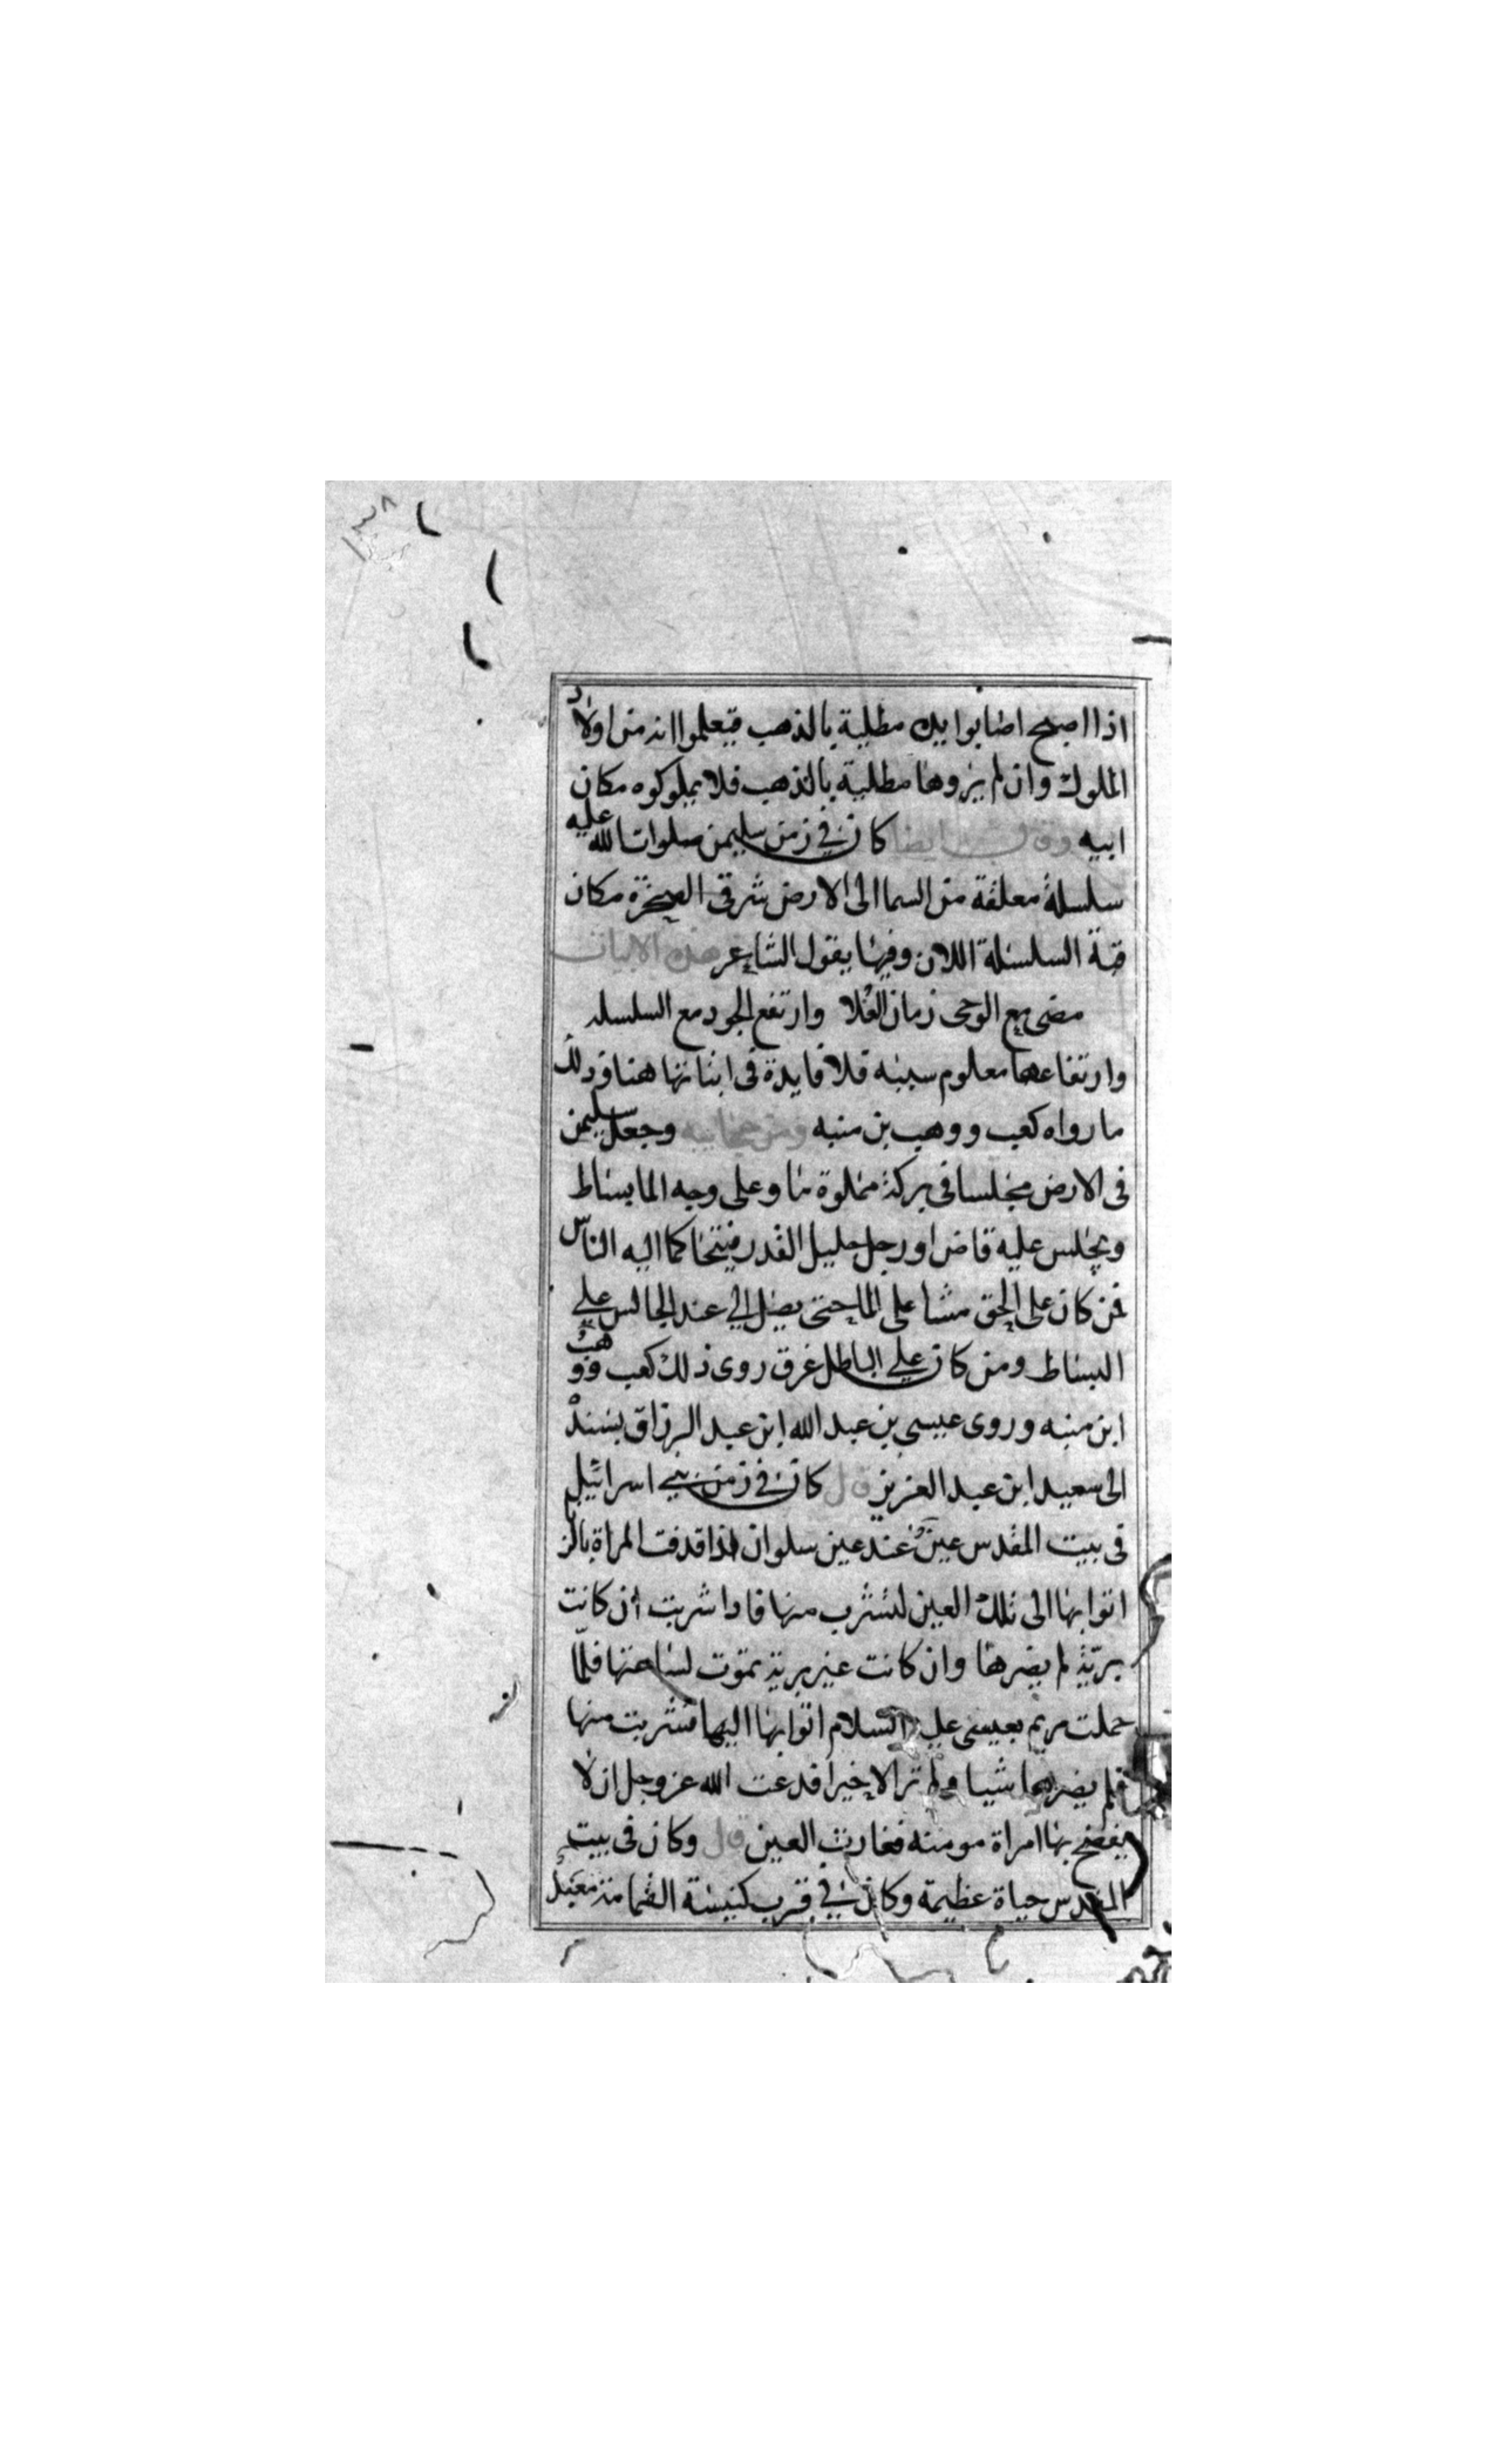 ١٣٨
اذا اصبح اصابوا يده مطلية بالذهب فيعلموا انه من اولاد
الملوك وان لم يروها مطلية بالذهب فلا يملوكوه مكان
ابيه وقال ايضا كان في زمن سليمن صلوات الله عليه
سلسلة معلقة من السما الى الارض شرقى الصخرة مكان
قبة السلسلة اللان وفيها يقول الشاعر هذه الابيات
مضى مع الوحى زمان العلا وارتفع الجود مع السلسله
وارتفاعها معلوم سببه فلا فايدة فى اثباتها هنا وذلك
ما رواه كعب ووهب بن منبه ومن عجايبه وجعل سليمن
فى الارض مجلسا فى بركة مملوة ما وعلى وجه الما بساط
ويجلس عليه قاض او رجل جليل القدر فيتحاكما اليه الناس
فمن كان على الحق مشا على الما حتى يصل الي عند الجالس علي
البساط ومن كان علي الباطل غرق روى ذلك كعب ووهب
ابن منبه وروى عيسى بن عبد الله ابن عبد الرزاق بسنده
الى سعيد ابن عبد العزيز قال كان في زمن بني اسرائيل
فى بيت المقدس عين عند عين سلوان اذا قدفت المراة بالزنا
اتوا بها الى تلك العين لتشرب منها فاذا شربت ان كانت
بريّة لم يضرها وان كانت غير برية تموت لساعتها فلمّا
حملت مريم بعيسى عليه السلام اتوا بها اليها فشربت منها
فلم يضرها شيا ولم تر الا خيرا فدعت الله عز وجل ان لا
يفضح بها امراة مومنه فغارت العين قال وكان فى بيت
المقدس حياة عظيمة وكان في قرب كنيسة القمامة